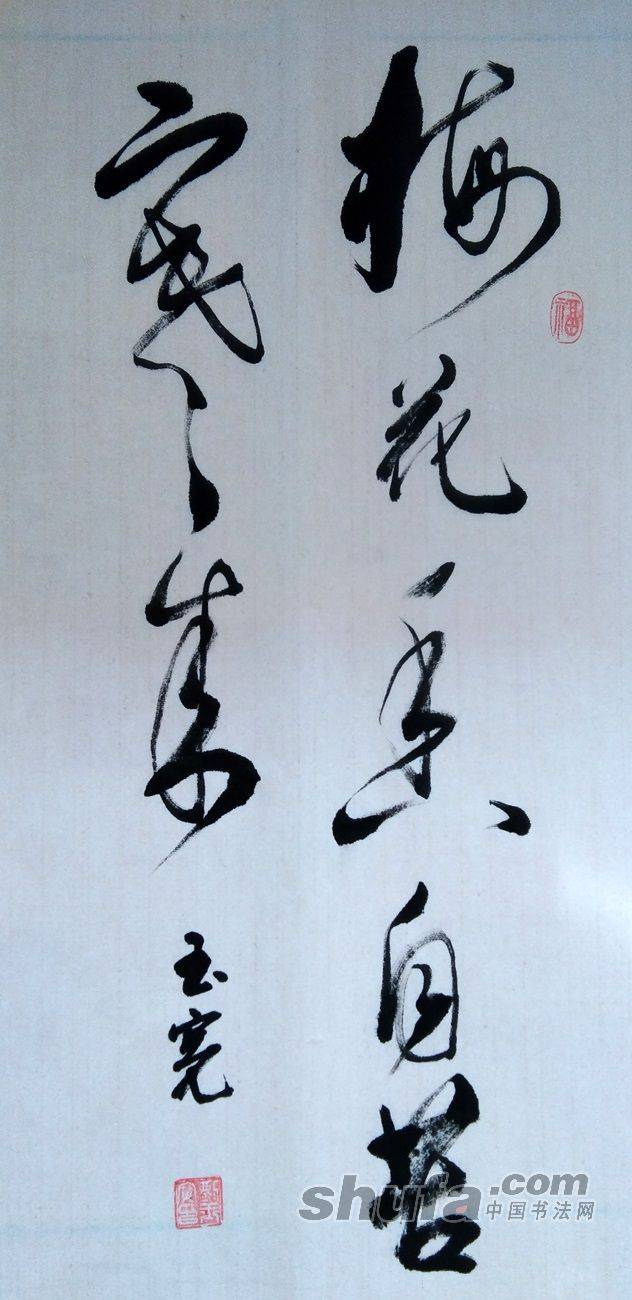 梅花香自苦
寒来
玉宽
福
shufa.com
中国书法网